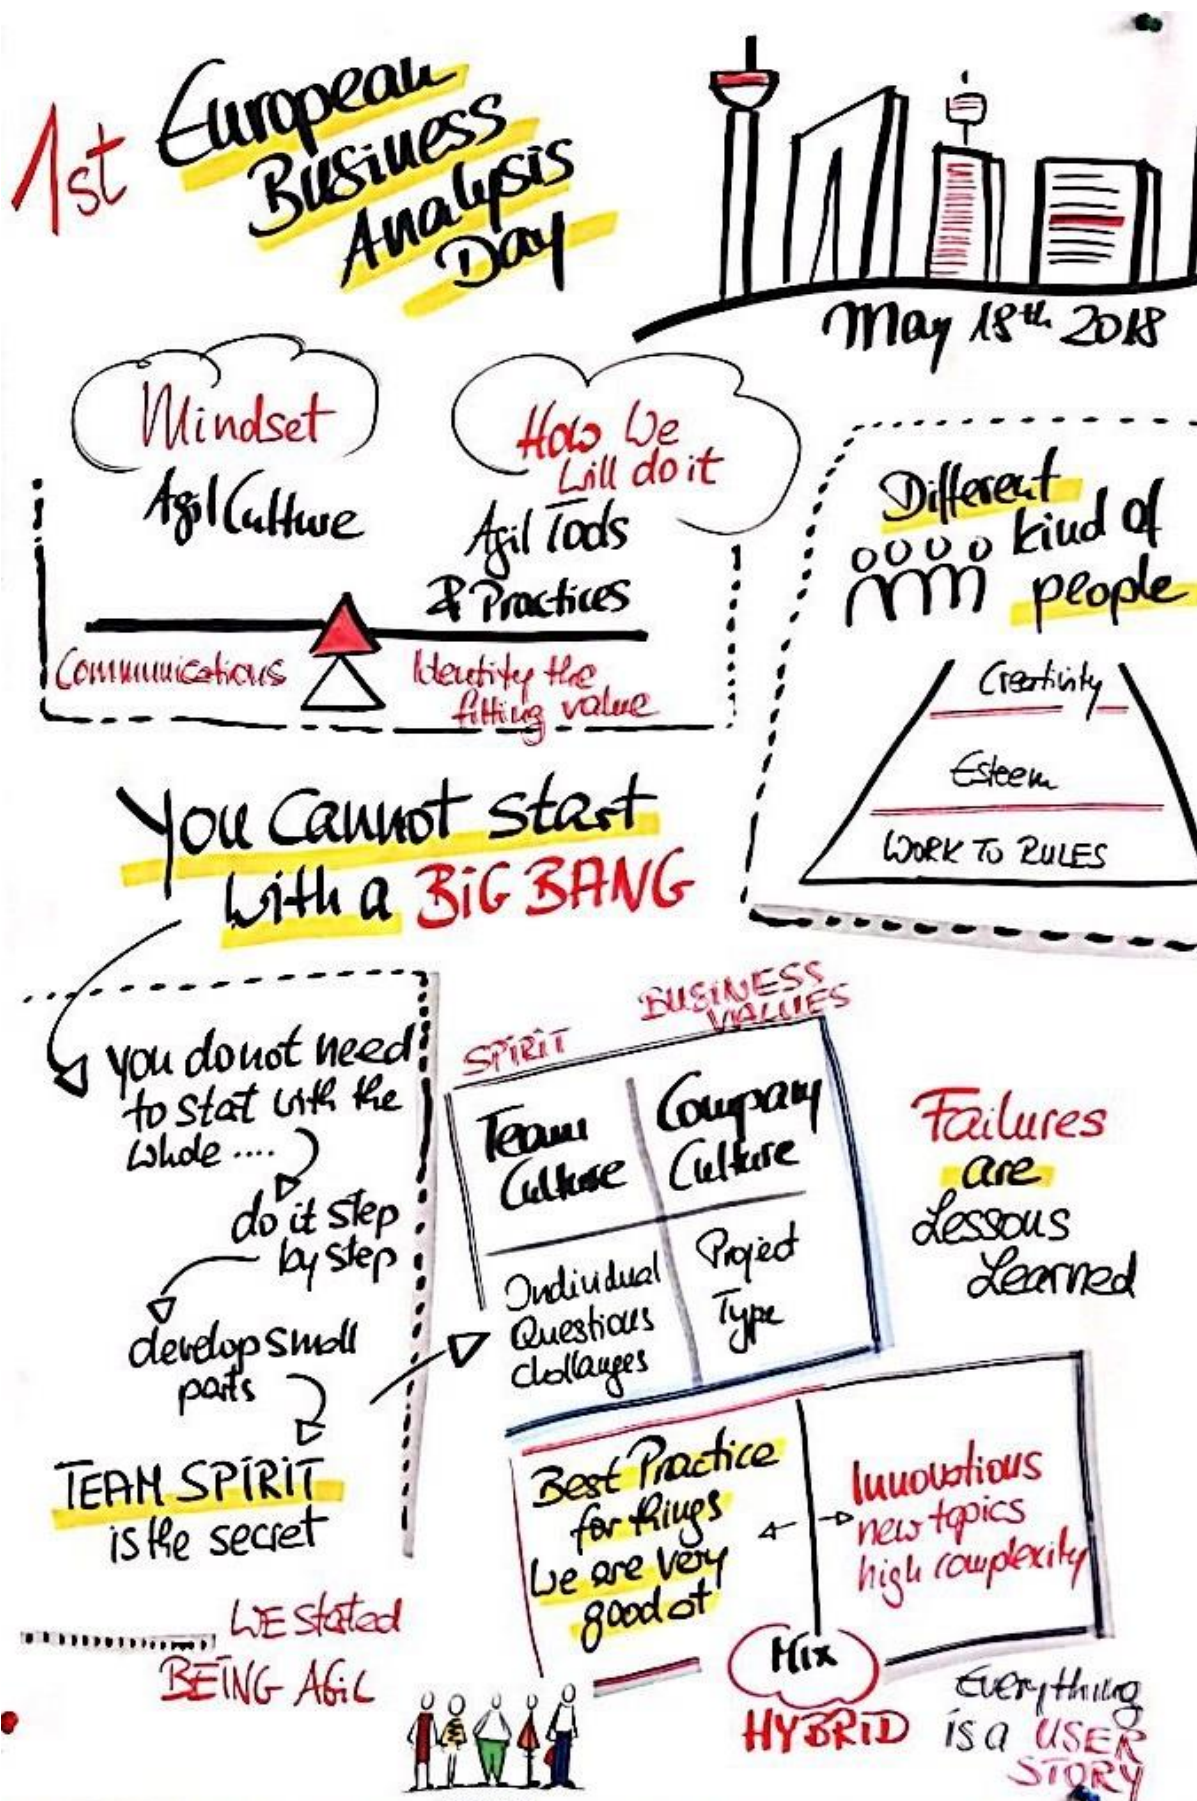 1st European
Business
Analysis
Day
May 18th 2018
Mindset
Agil Culture
How We
will do it
Agil Tools
& Practices
Communications
Identity the
fitting value
Different
kind of
people
Creativity
Esteem
WORK TO RULES
You Cannot start
with a BIG BANG
you do not need
to stat with the
whole ....
do it step
by step
develop small
parts
TEAM SPIRIT
is the secret
WE stated
BEING AGIL
SPIRIT
BUSINESS
VALUES
Team
Culture
Company
Culture
Individual
Questions
challanges
Project
Type
Failures
are
Lessons
Learned
Best Practice
for things
we are very
good at
Innovations
new topics
high complexity
Mix
HYBRID
Everything
is a USER
STORY